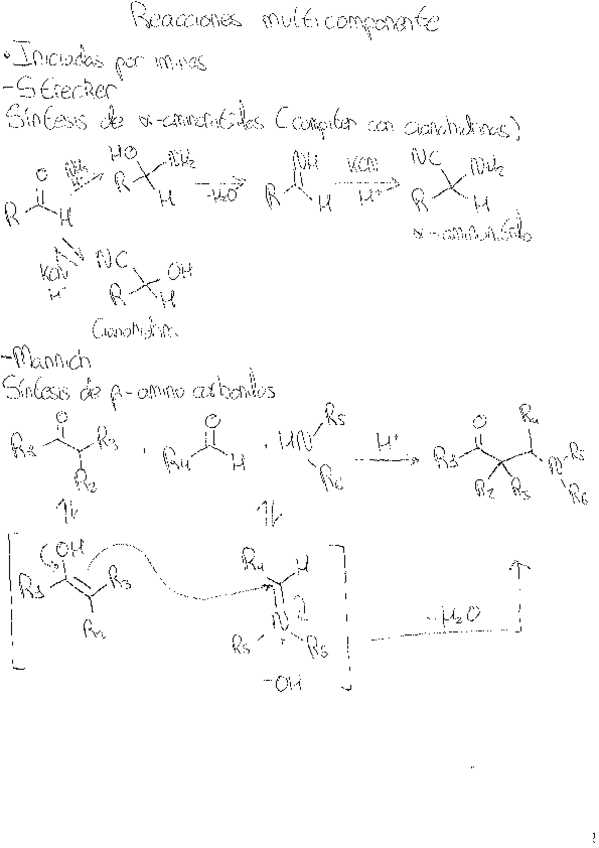 Reacciones multicomponente
• Iniciadas por iminas
- Strecker
Síntesis de α-aminonitrilos (compiten con cianohidrinas)
O
R H
NH₃
H⁺
HO NH₂
R H
-H₂O
NH
R H
KCN
H⁺
NC NH₂
R H
α-aminonitrilo
KCN
NC OH
R H
- Mannich
Síntesis de β-amino carbonilos
O
R₁ R₃
R₂
O
R₄ H
HN R₅
R₆
H⁺
O R₄
R₁ N R₅
R₂ R₃ R₆
OH
R₁ R₃
R₂
R₄ H
N
+
R₅ R₆
-OH
- H₂O